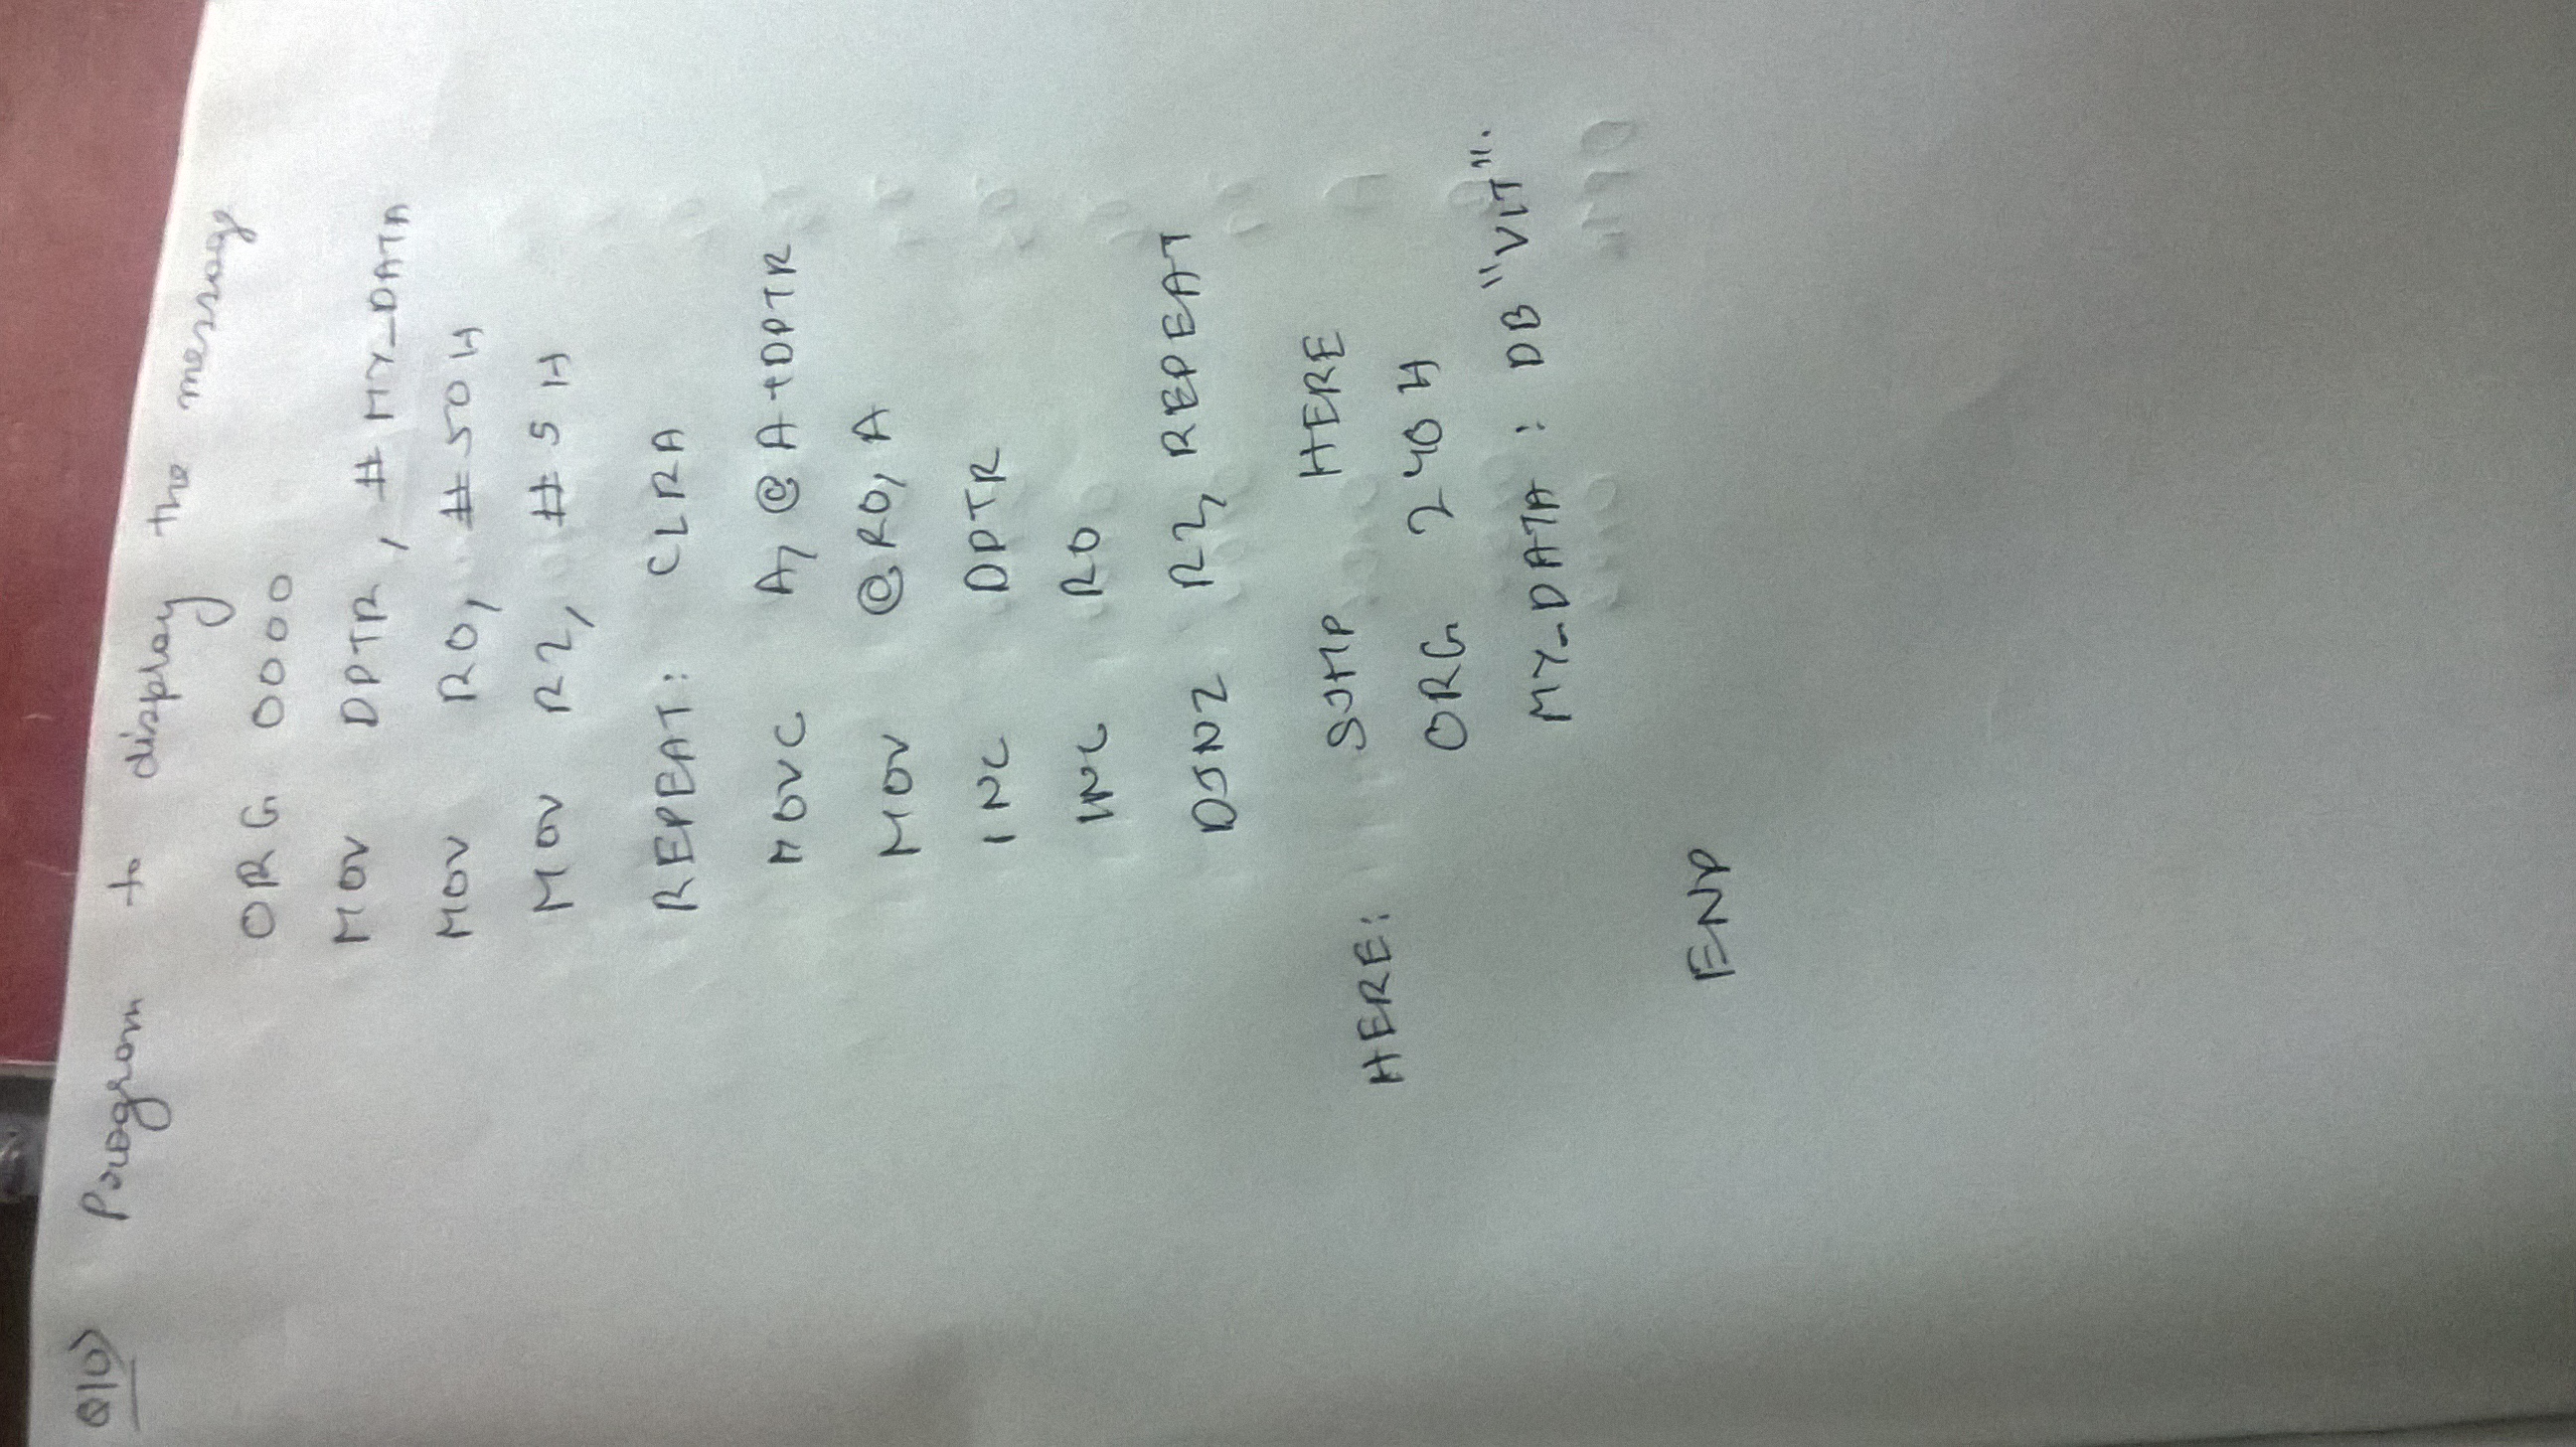 Q10) Program to display the message
ORG 0000
MOV DPTR, #MY_DATA
MOV R0, #50H
MOV R2, #5H
REPEAT: CLRA
MOVC A, @A+DPTR
MOV @R0, A
INC DPTR
INC R0
DJNZ R2, REPEAT
HERE: SJMP HERE
ORG 240H
MY_DATA : DB "VIT".
END